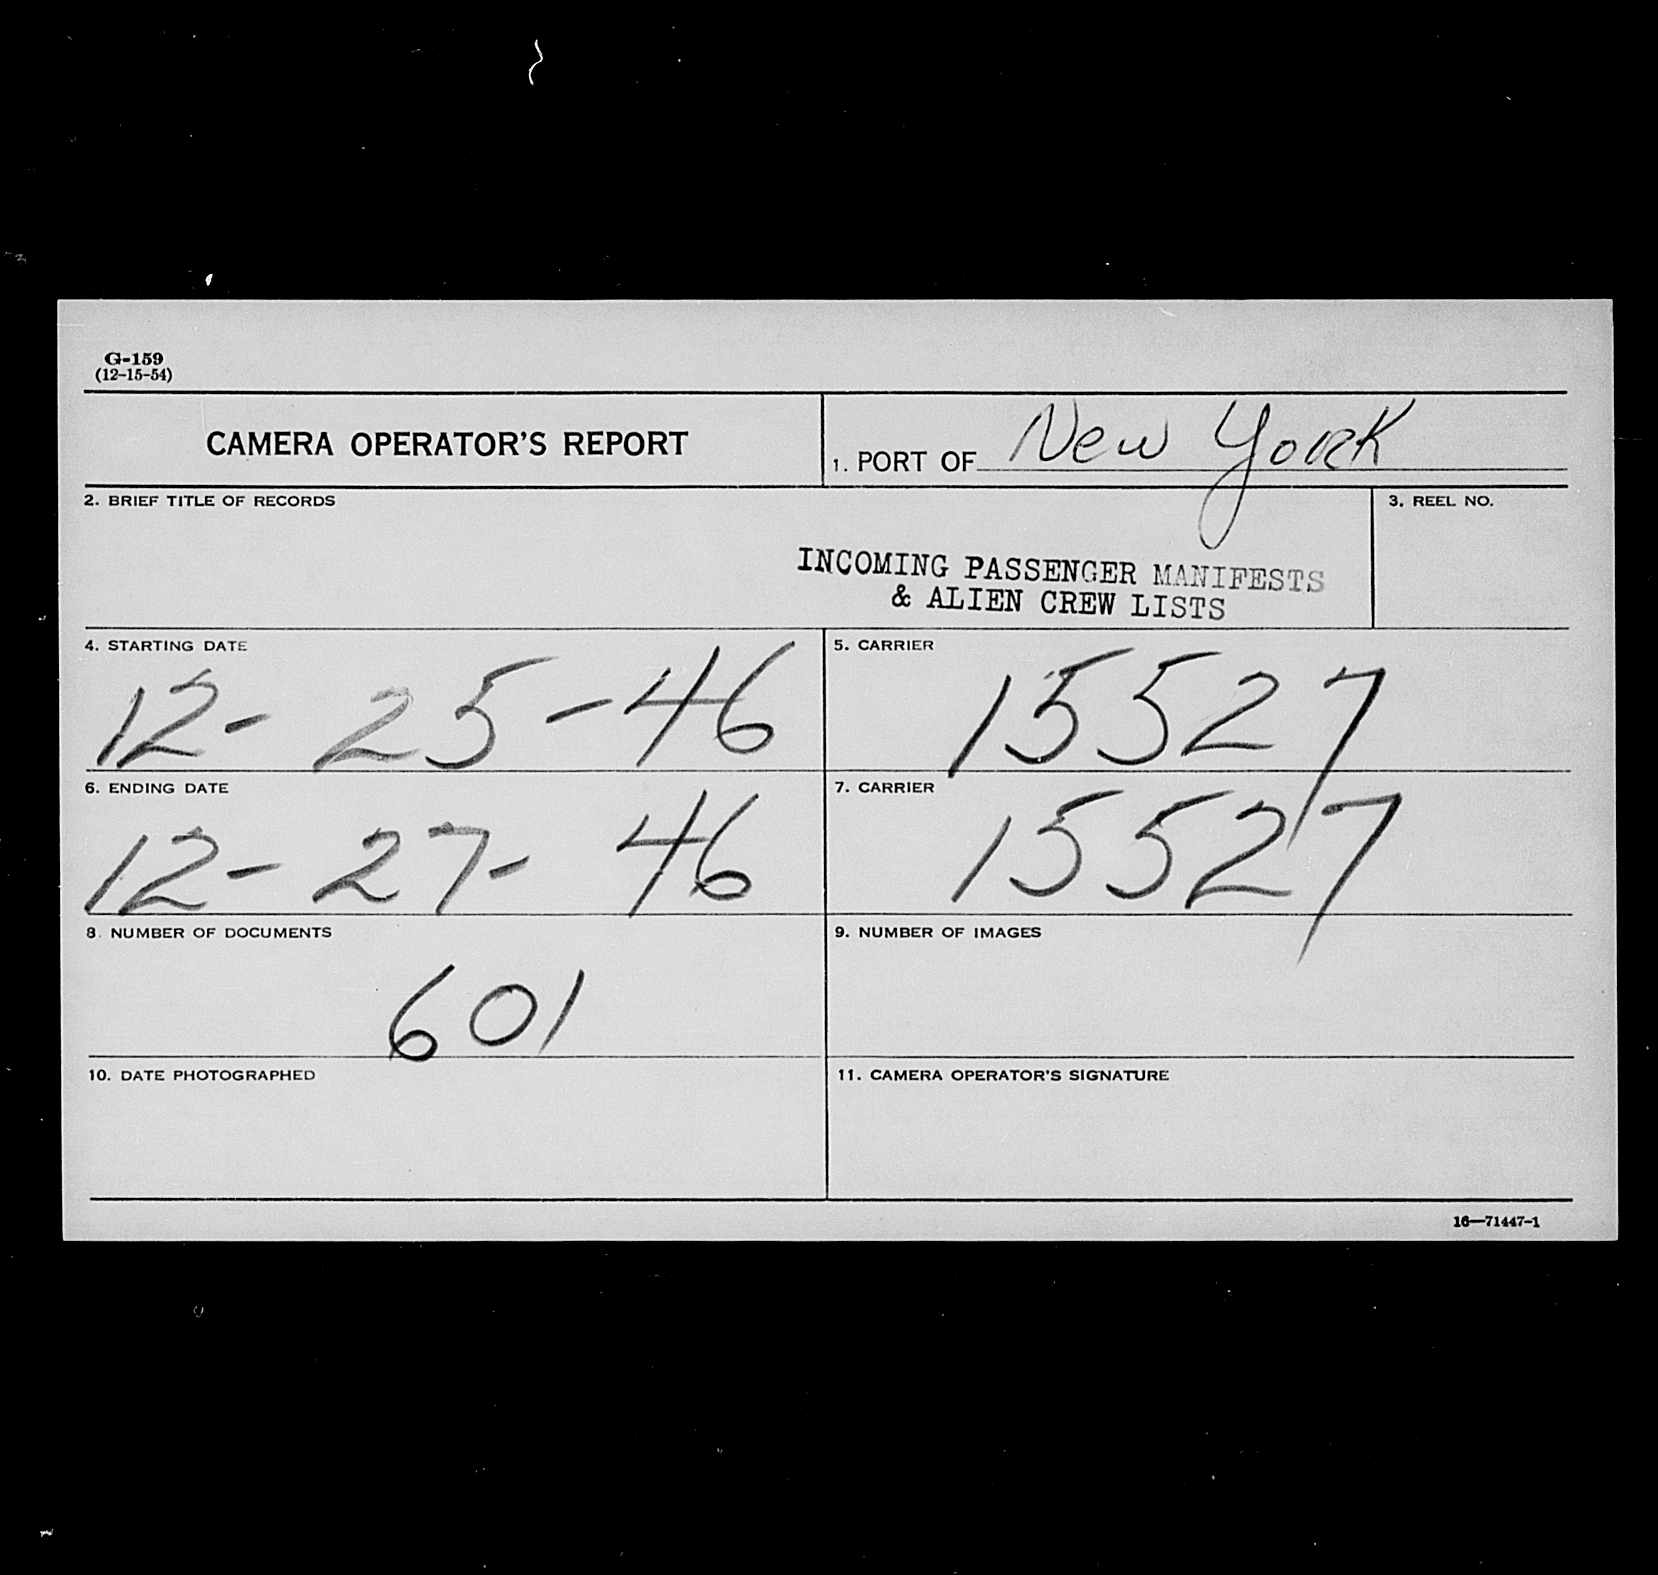 G-159
(12-15-54)
CAMERA OPERATOR'S REPORT
1. PORT OF New York
2. BRIEF TITLE OF RECORDS
3. REEL NO.
INCOMING PASSENGER MANIFESTS
& ALIEN CREW LISTS
4. STARTING DATE
12- 25-46
5. CARRIER
15527
6. ENDING DATE
12- 27- 46
7. CARRIER
15527
8. NUMBER OF DOCUMENTS
601
9. NUMBER OF IMAGES
10. DATE PHOTOGRAPHED
11. CAMERA OPERATOR'S SIGNATURE
16—71447-1